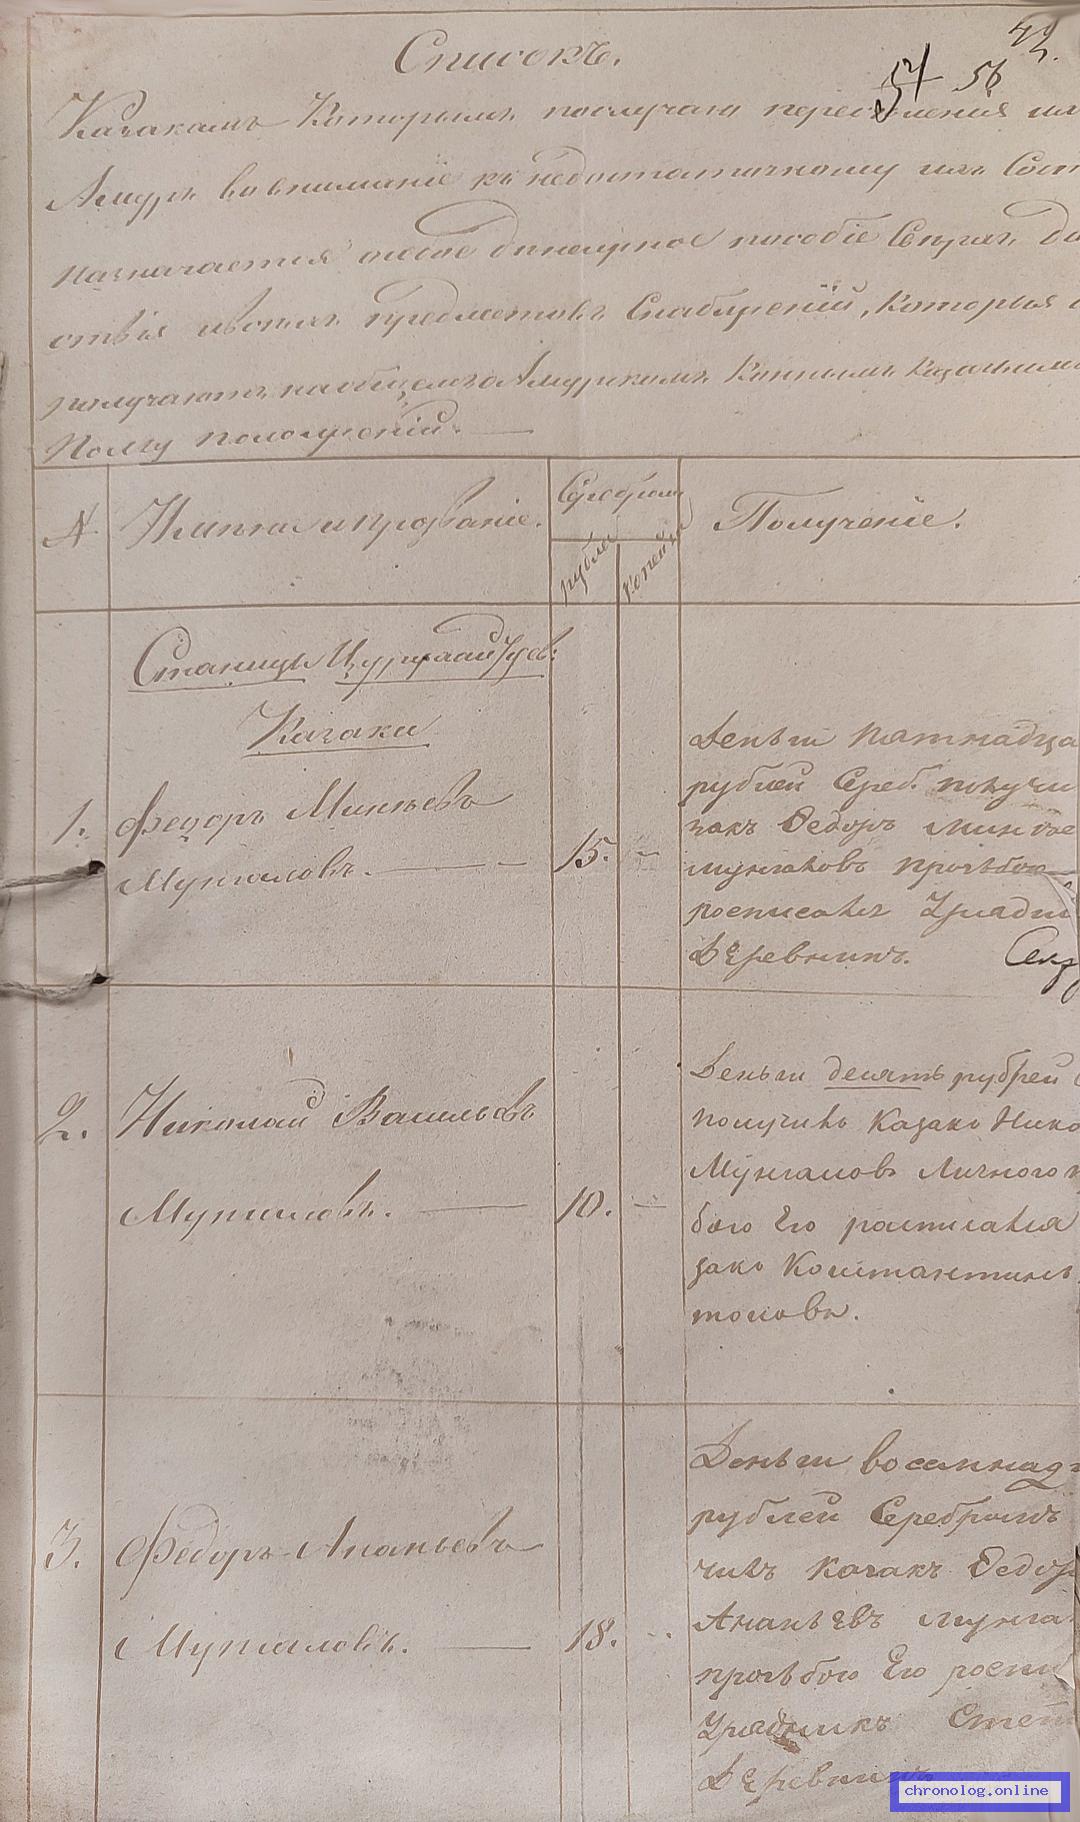 Списокъ.
54 56
Казакамъ Которымъ послучаю переселенія на
Амуръ вовниманіе къ недостаточному ихъ Сост
назначается особое денежное пособіе Сверхъ, до
ствія ивсѣхъ предметовъ Снабженій, Которыя
получаютъ наобщемъ о Амурскомъ Конномъ Казачьемъ
Полку положеніи.
№ Имена и прозваніе. Серебромъ Получение.
рубли копейки
Станицы Цурухайтуев:
Казаки
1. Федоръ Минѣевъ
Мунгаловъ. 15.
Деньги пятнадца
рублей Сереб. получи
закъ Ѳедоръ Минѣе
мунгаловъ прозьбою
росписался Урядни
Деревнинъ.
2. Николай Васильевъ
Мунгаловъ. 10.
Деньги десять рублей
получилъ Казакъ Нико
Мунгаловъ Личного
бою Его росписался
закъ Константинъ
толовъ.
3. Федоръ Ананьевъ
Мунгаловъ. 18.
Деньги восемнадц
рублей Серебромъ
чилъ казакъ Ѳедор
Ананьевъ мунга
прозьбою Его роспи
Урядникъ Степ
Деревнинъ
chronolog.online